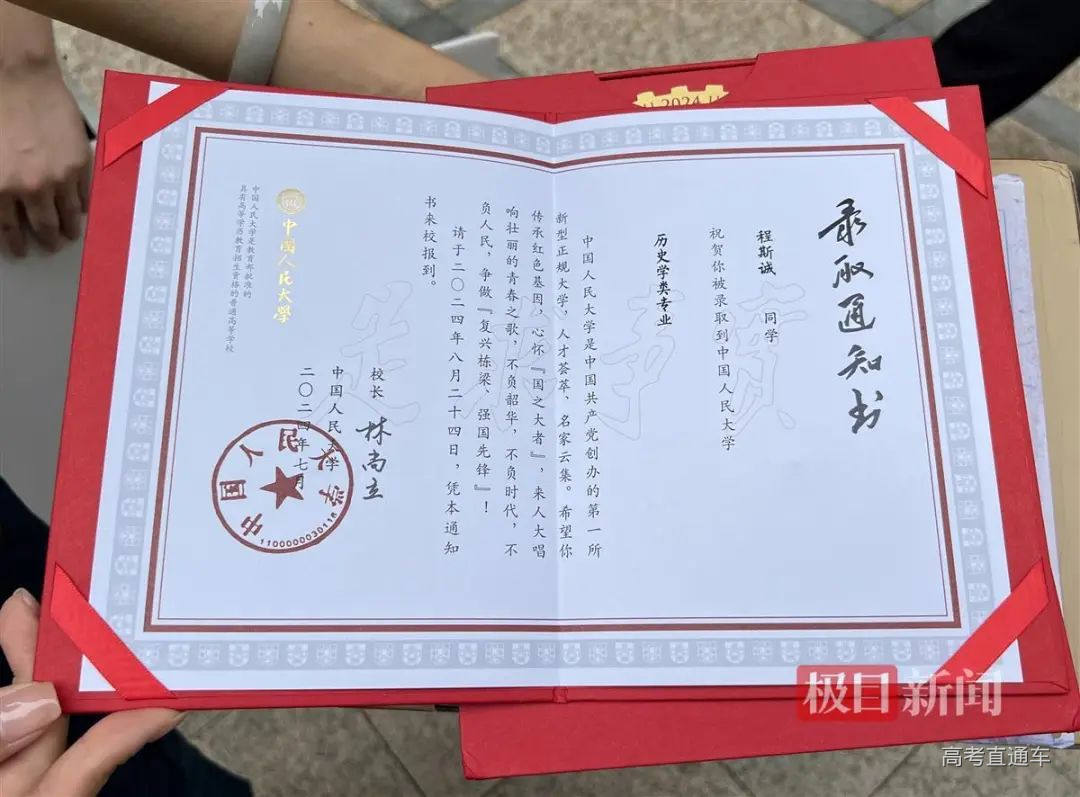 2024
录取通知书
程斯诚 同学
祝贺你被录取到中国人民大学
历史学类专业
中国人民大学是中国共产党创办的第一所
新型正规大学，人才荟萃、名家云集。希望你
传承红色基因，心怀『国之大者』，来人大唱
响壮丽的青春之歌，不负韶华，不负时代，不
负人民，争做『复兴栋梁、强国先锋』！
请于二〇二四年八月二十四日，凭本通知
书来校报到。
校长 林尚立
中国人民大学
二〇二四年七月
中国人民大学
中国人民大學
中国人民大学是教育部批准的
具有高等学历教育招生资格的普通高等学校
實事求是
极目新闻
高考直通车